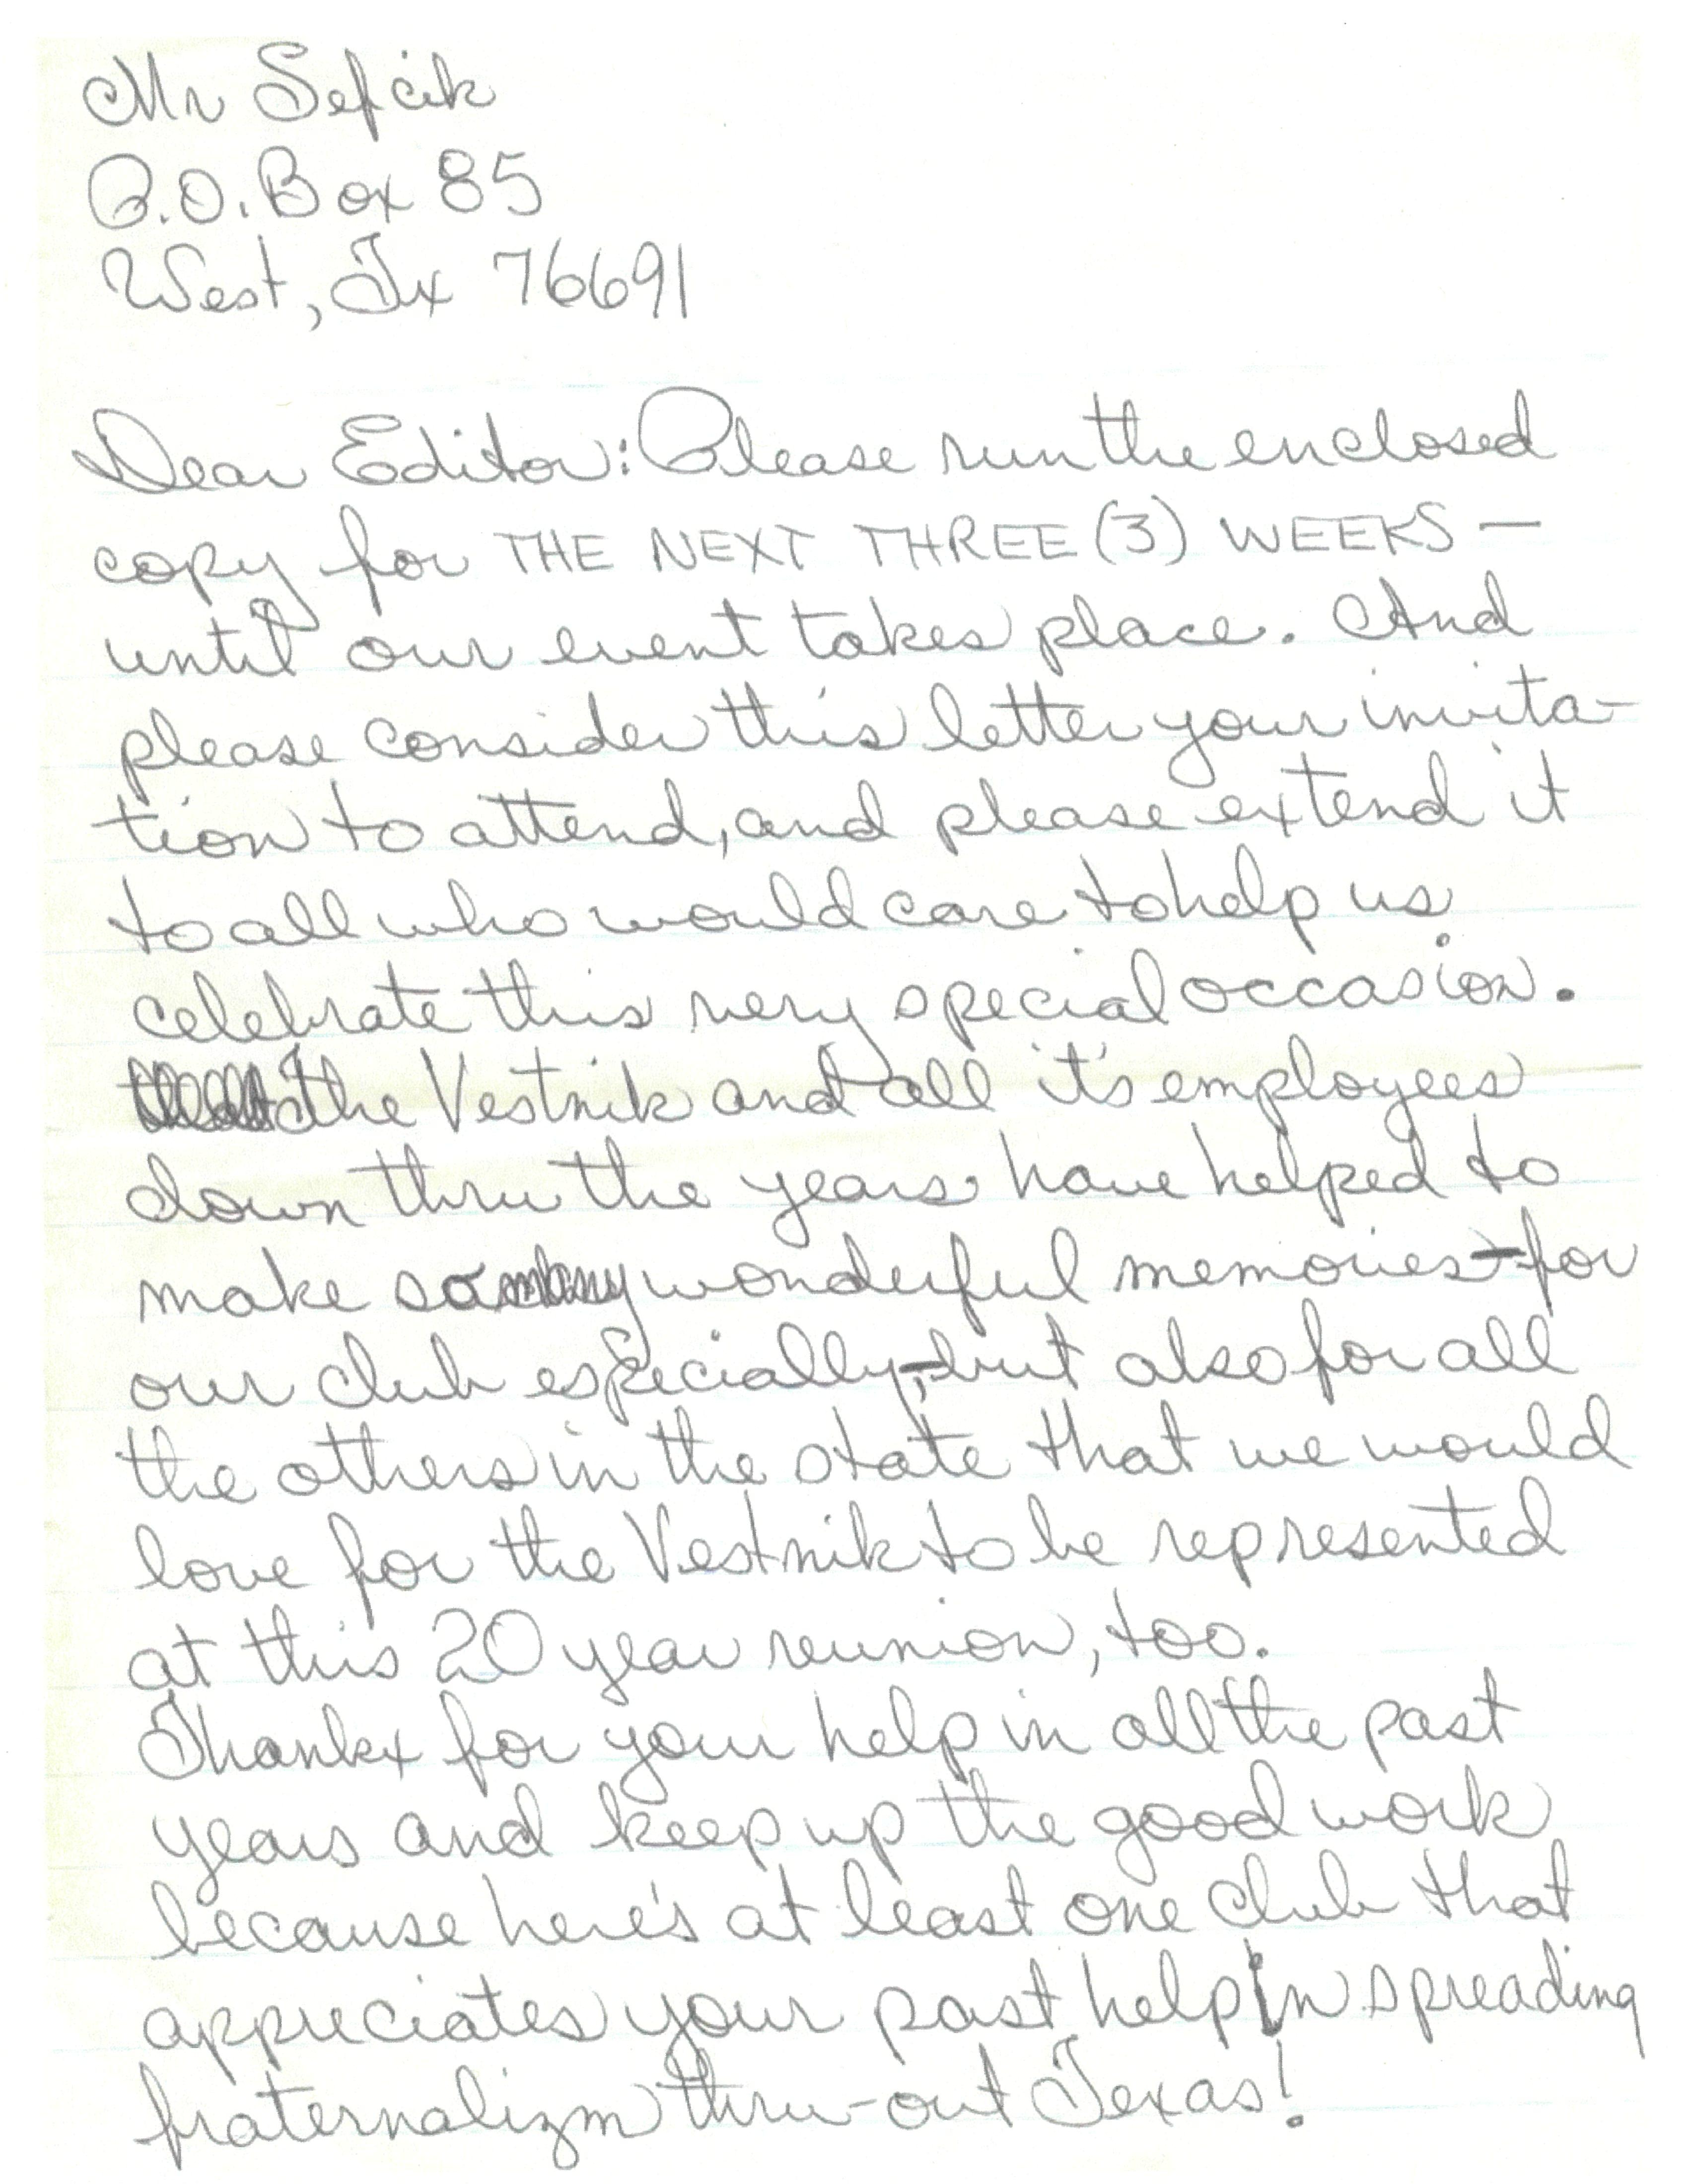 Mr Sefcik
P.O. Box 85
West, Tx 76691
Dear Editor: Please run the enclosed
copy for THE NEXT THREE (3) WEEKS —
until our event takes place. And
please consider this letter your invita-
tion to attend, and please extend it
to all who would care to help us
celebrate this very special occasion.
The Vestnik and all it's employees
down thru the years have helped to
make so many wonderful memories - for
our club especially, - but also for all
the others in the state that we would
love for the Vestnik to be represented
at this 20 year reunion, too.
Thankx for your help in all the past
years and keep up the good work
because here's at least one club that
appreciates your past help in spreading
fraternalizm thru-out Texas!